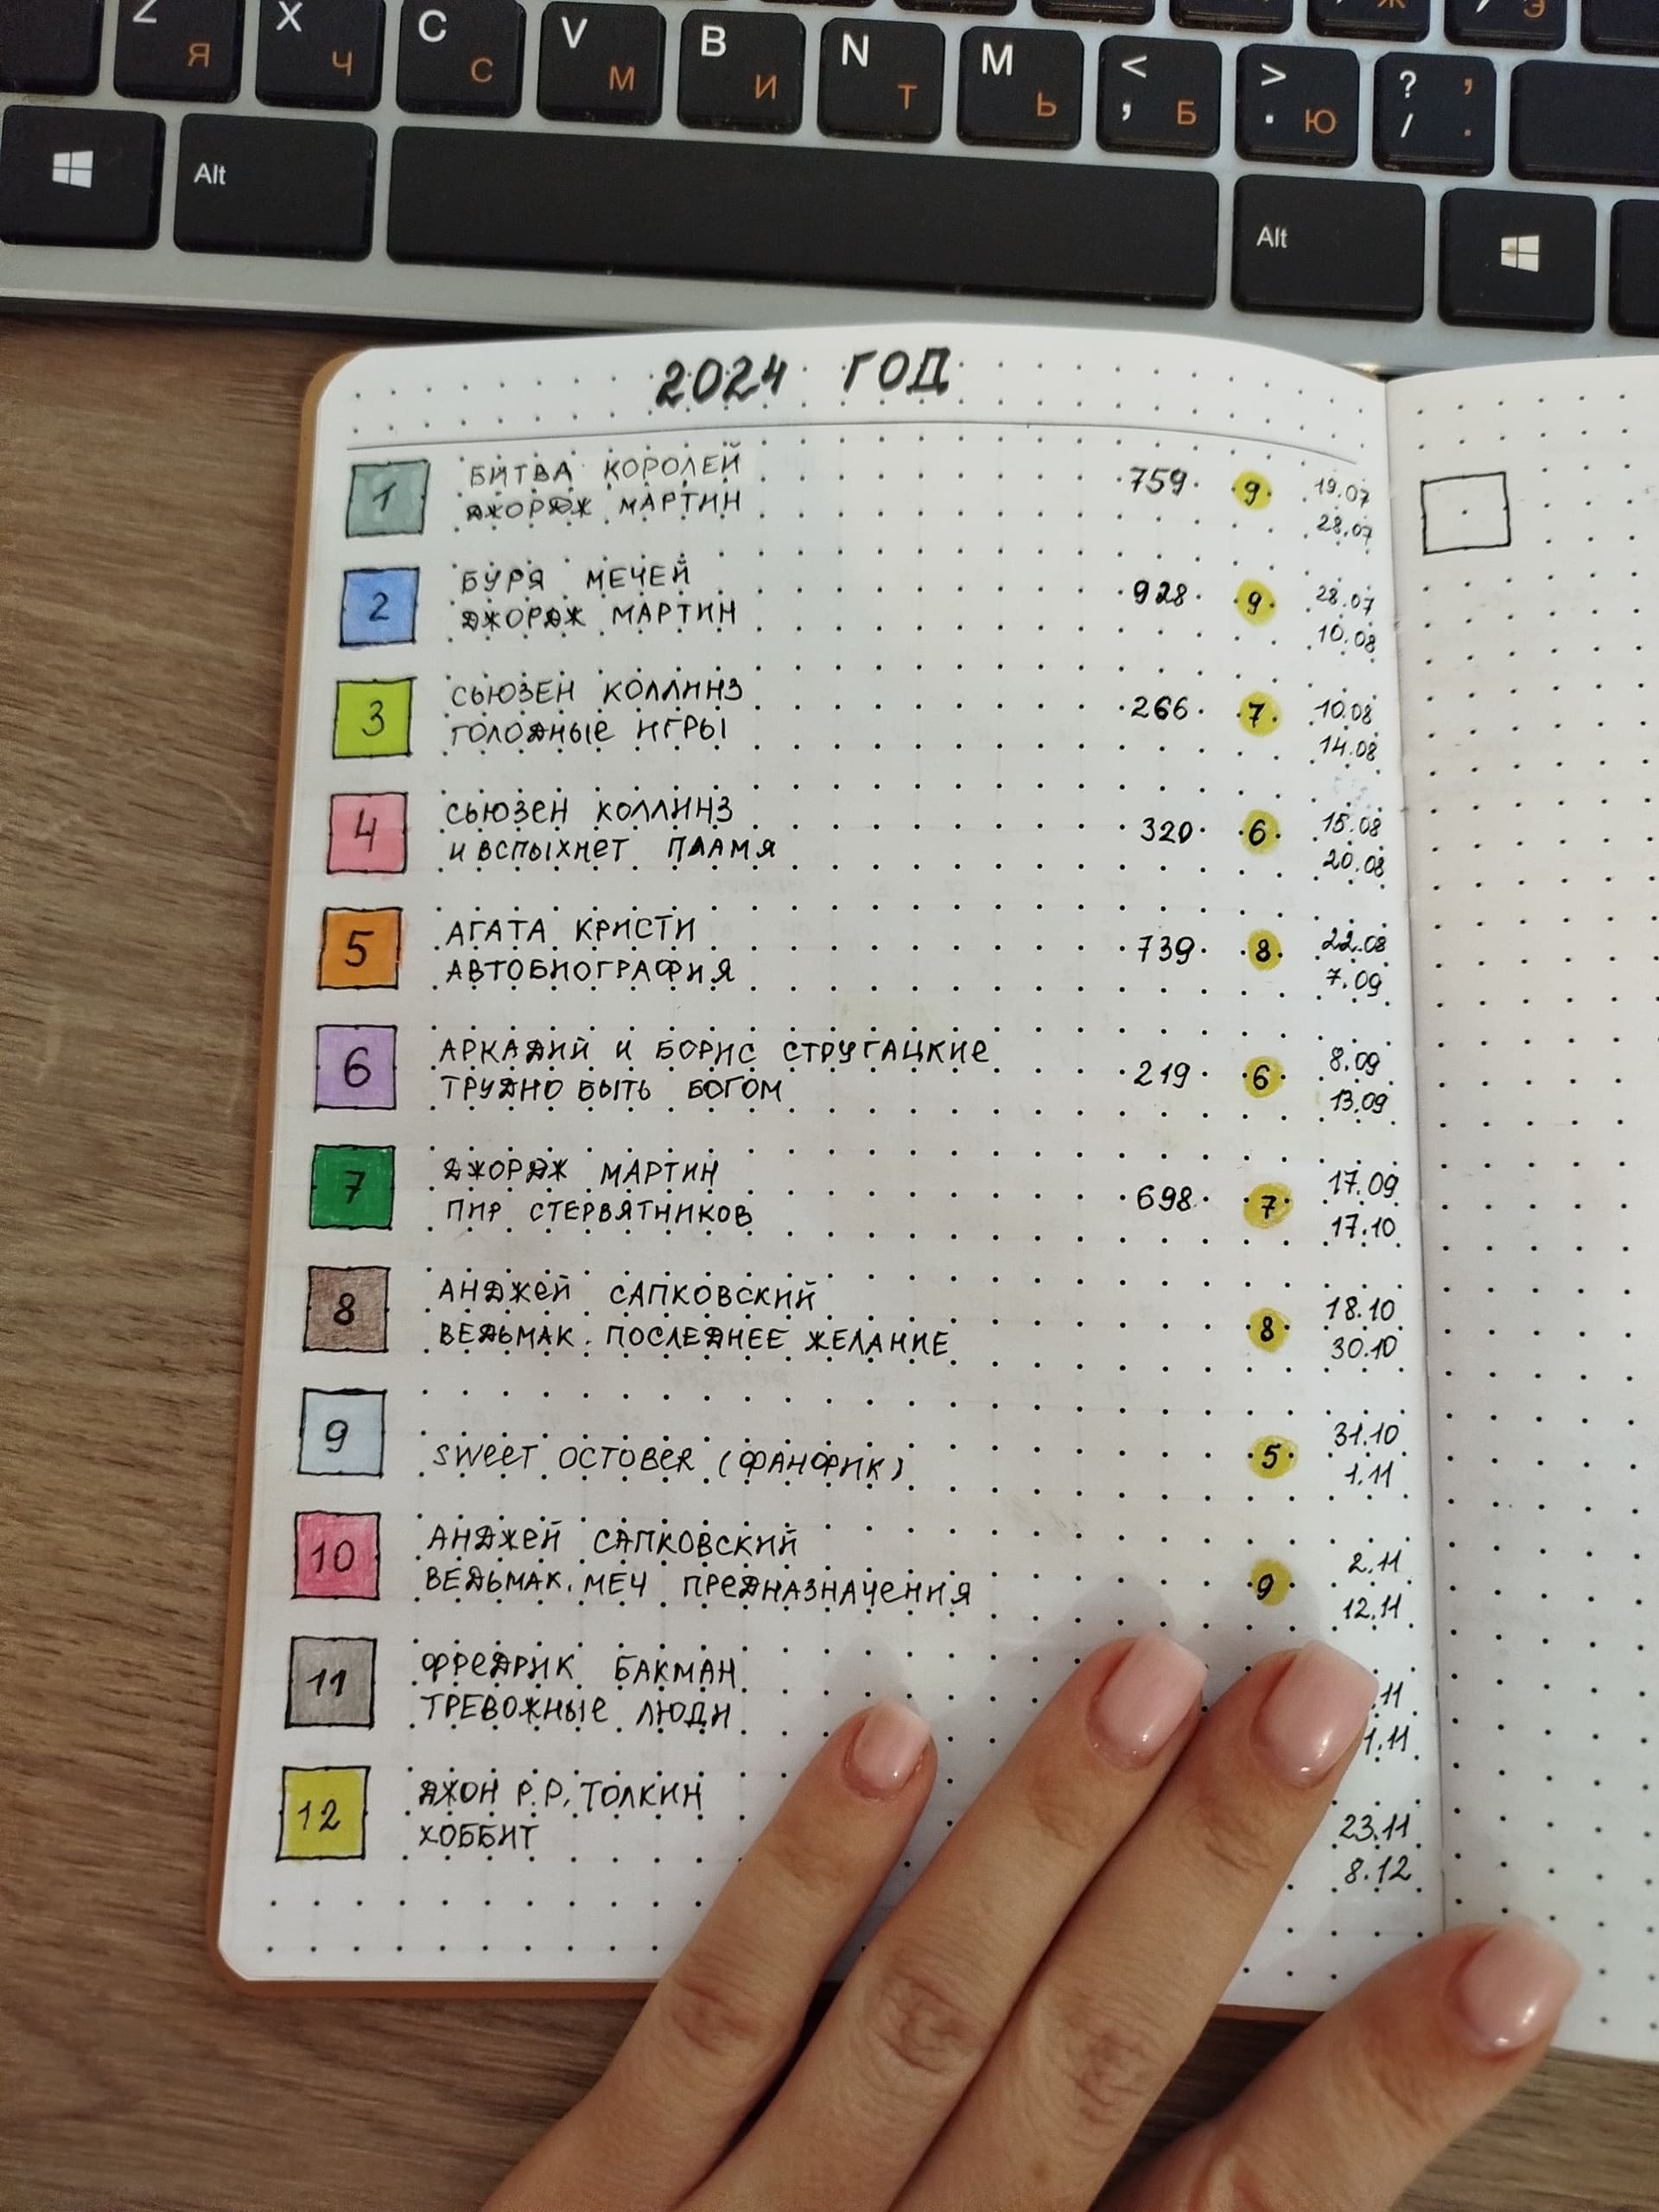 Z Я X Ч C С V М B И N Т M Ь < , Б > . Ю ? / , .
Alt Alt
2024 ГОД
1 БИТВА КОРОЛЕЙ 759 9 19.07
ДЖОРДЖ МАРТИН 28.07
2 БУРЯ МЕЧЕЙ 928 9 28.07
ДЖОРДЖ МАРТИН 10.08
3 СЬЮЗЕН КОЛЛИНЗ 266 7 10.08
ГОЛОДНЫЕ ИГРЫ 14.08
4 СЬЮЗЕН КОЛЛИНЗ 320 6 15.08
И ВСПЫХНЕТ ПЛАМЯ 20.08
5 АГАТА КРИСТИ 739 8 22.08
АВТОБИОГРАФИЯ 7.09
6 АРКАДИЙ И БОРИС СТРУГАЦКИЕ 219 6 8.09
ТРУДНО БЫТЬ БОГОМ 13.09
7 ДЖОРДЖ МАРТИН 698 7 17.09
ПИР СТЕРВЯТНИКОВ 17.10
8 АНДЖЕЙ САПКОВСКИЙ 8 18.10
ВЕДЬМАК. ПОСЛЕДНЕЕ ЖЕЛАНИЕ 30.10
9 31.10
SWEET OCTOBER (ФАНФИК) 5 1.11
10 АНДЖЕЙ САПКОВСКИЙ 2.11
ВЕДЬМАК. МЕЧ ПРЕДНАЗНАЧЕНИЯ 9 12.11
11 ФРЕДРИК БАКМАН .11
ТРЕВОЖНЫЕ ЛЮДИ 1.11
12 ДЖОН Р.Р. ТОЛКИН 23.11
ХОББИТ 8.12